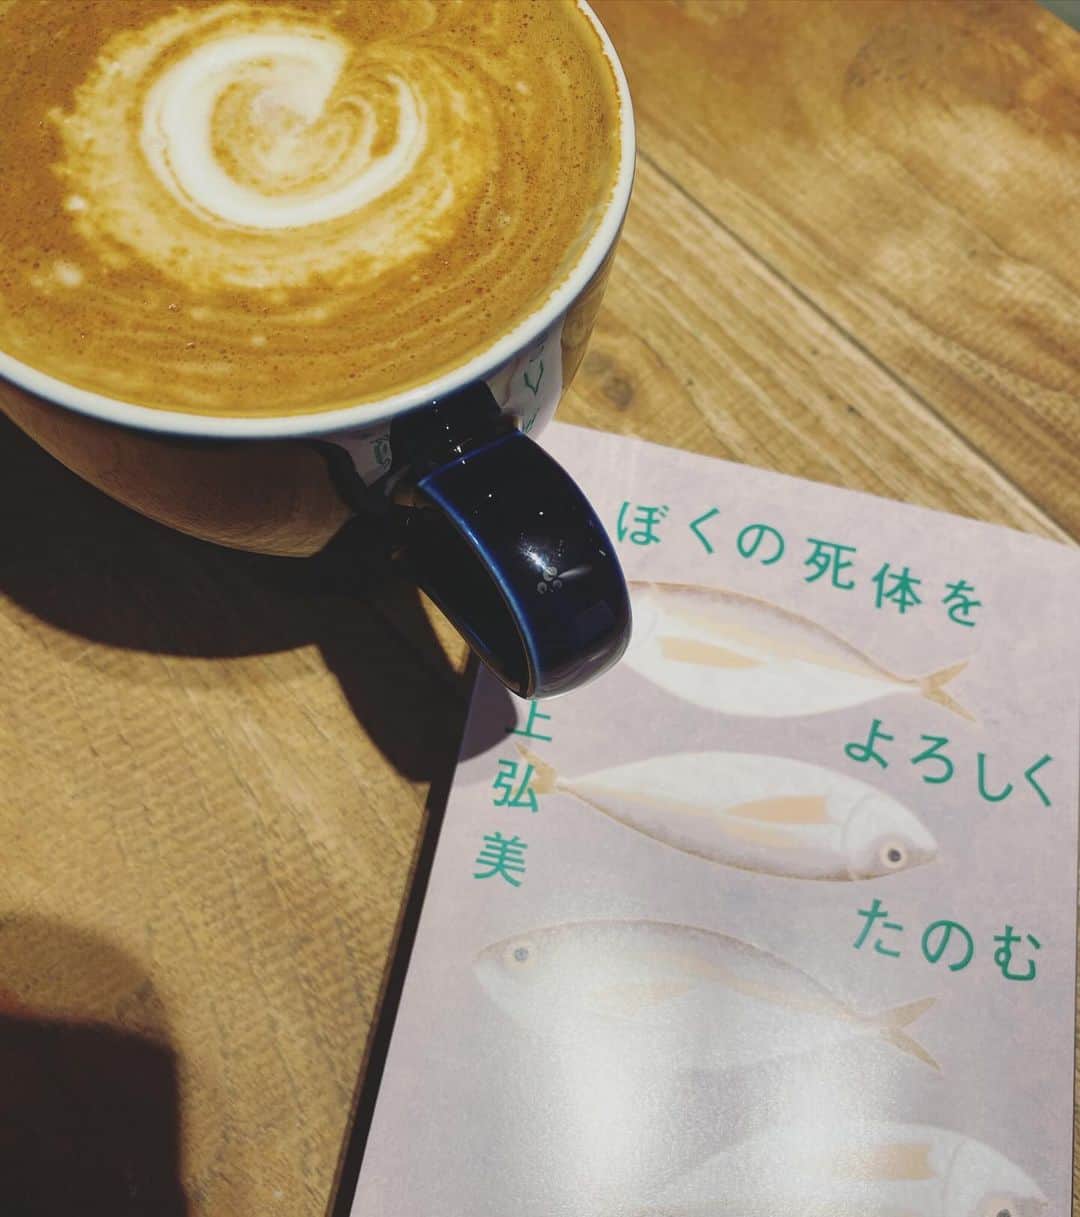 ぼくの死体を
よろしく
たのむ
上弘美